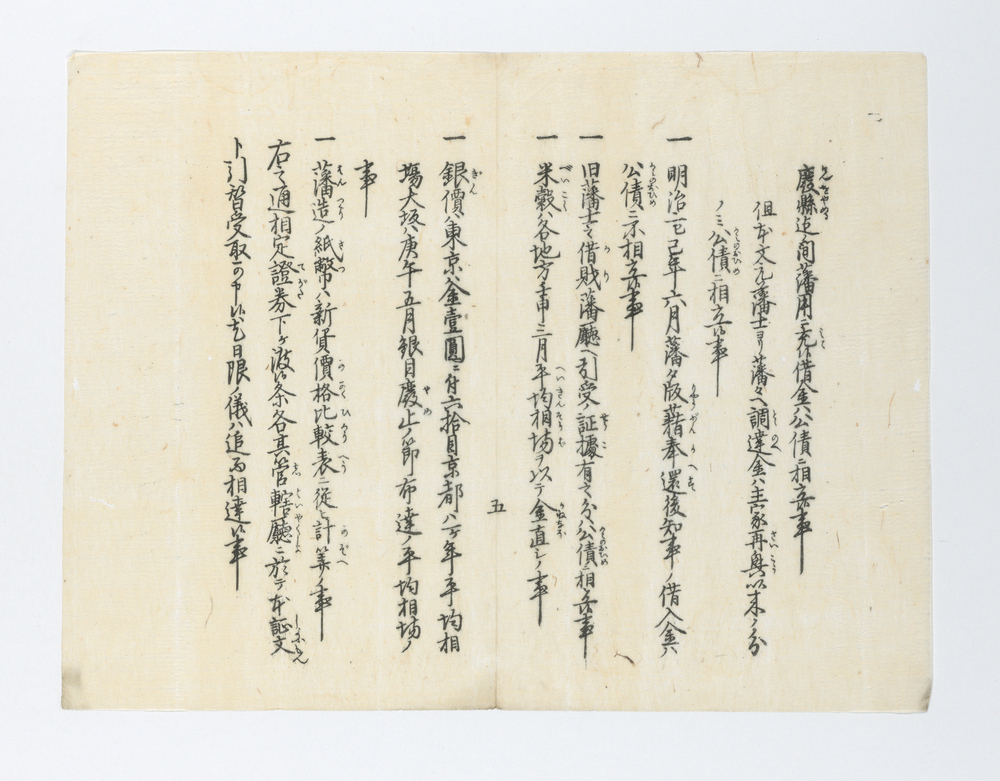 廢縣迄間藩用ニ充候借金ハ公債ニ相立候事
但本文元藩士ヨリ藩々ヘ調達金ハ主家再興以来ノ分
ノミ公債ニ相立候事
一 明治二己巳年六月藩々版籍奉還後知事ノ借入金ハ
公債ニ不相立候事
一 旧藩士之借財藩廳ヘ引受ノ証據有之分ハ公債ニ相立候事
一 米穀ハ各地方壬申三月平均相場ヲ以テ金直シノ事
五
一 銀價ハ東京ハ金壹圓ニ付六拾目京都ハ一ケ年平均相
場大坂ハ庚午五月銀目廢止ノ節布達ノ平均相場ノ
事
一 藩造ノ紙幣ハ新貨價格比較表ニ従ヒ計算ノ事
右之通相定證券下ケ渡候条各其管轄廳ニ於テ本証文
ト引替受取可申候尤日限ノ儀ハ追而相達候事